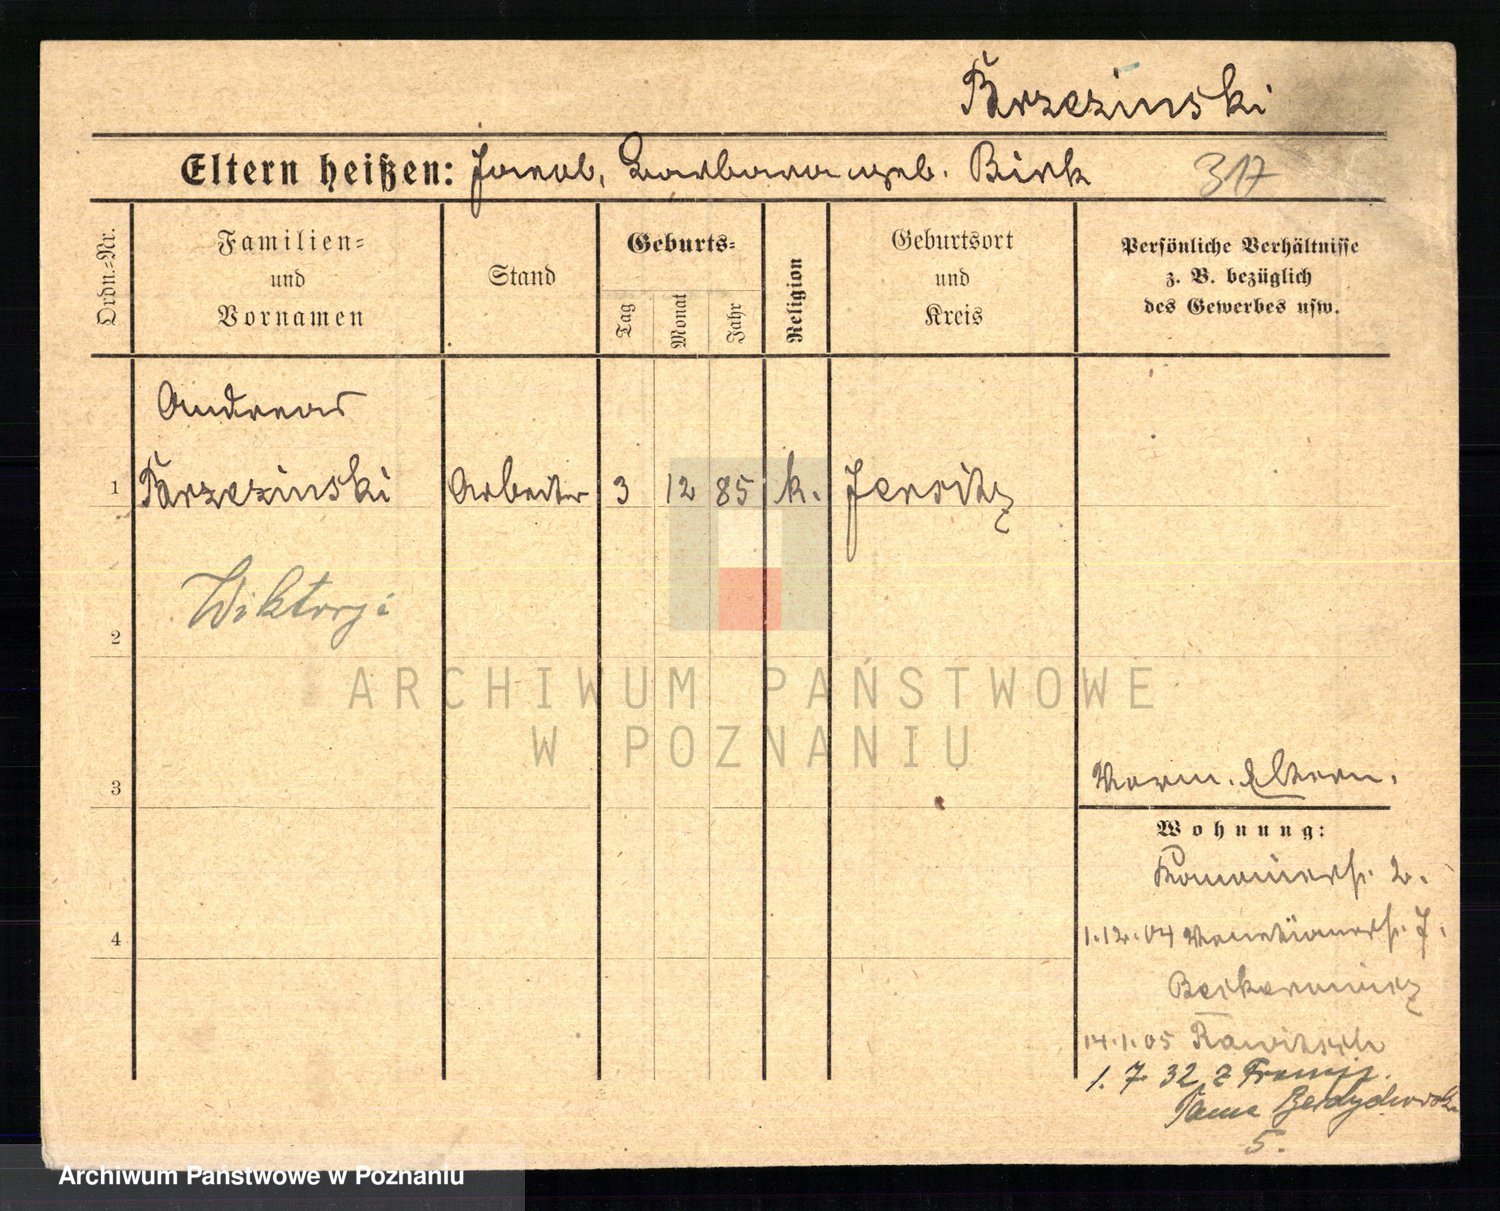 Brzezinski
Eltern heißen: Jacob, Barbara geb. Birk
317
Ordn.-Nr.
Familien-
und
Vornamen
Stand
Geburts-
Tag
Monat
Jahr
Religion
Geburtsort
und
Kreis
Persönliche Verhältnisse
z. B. bezüglich
des Gewerbes usw.
Andreas
1 Brzezinski Arbeiter 3 12 85 k. Jersitz
Wiktorji
2
ARCHIWUM PAŃSTWOWE
W POZNANIU
3
Eltern.
Wohnung:
2.
4
1.12.04 Venetianerstr. 7.
14.1.05 Rawitsch
1. 7 32 z Francji.
Tama Berdychowska
5.
Archiwum Państwowe w Poznaniu